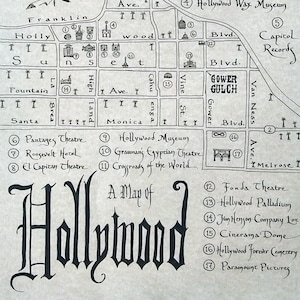 ④ Hollywood Wax Museum
Franklin Ave.
⑤ Capitol Records
Holly wood Blvd.
Sunset Blvd.
Fountain Ave.
La Brea
Highland
Cahuenga
Vine St.
GOWER GULCH
Gower
Van Ness Ave.
Santa Monica Blvd.
Melrose
⑥ Pantages Theatre
⑦ Roosevelt Hotel
⑧ El Capitan Theatre
⑨ Hollywood Museum
⑩ Grauman's Egyptian Theatre
⑪ Crossroads of the World
A Map of
Hollywood
⑫ Fonda Theatre
⑬ Hollywood Palladium
⑭ Jim Henson Company Lot
⑮ Cinerama Dome
⑯ Hollywood Forever Cemetery
⑰ Paramount Pictures